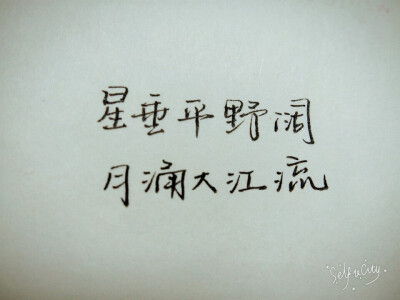 星垂平野阔
月涌大江流